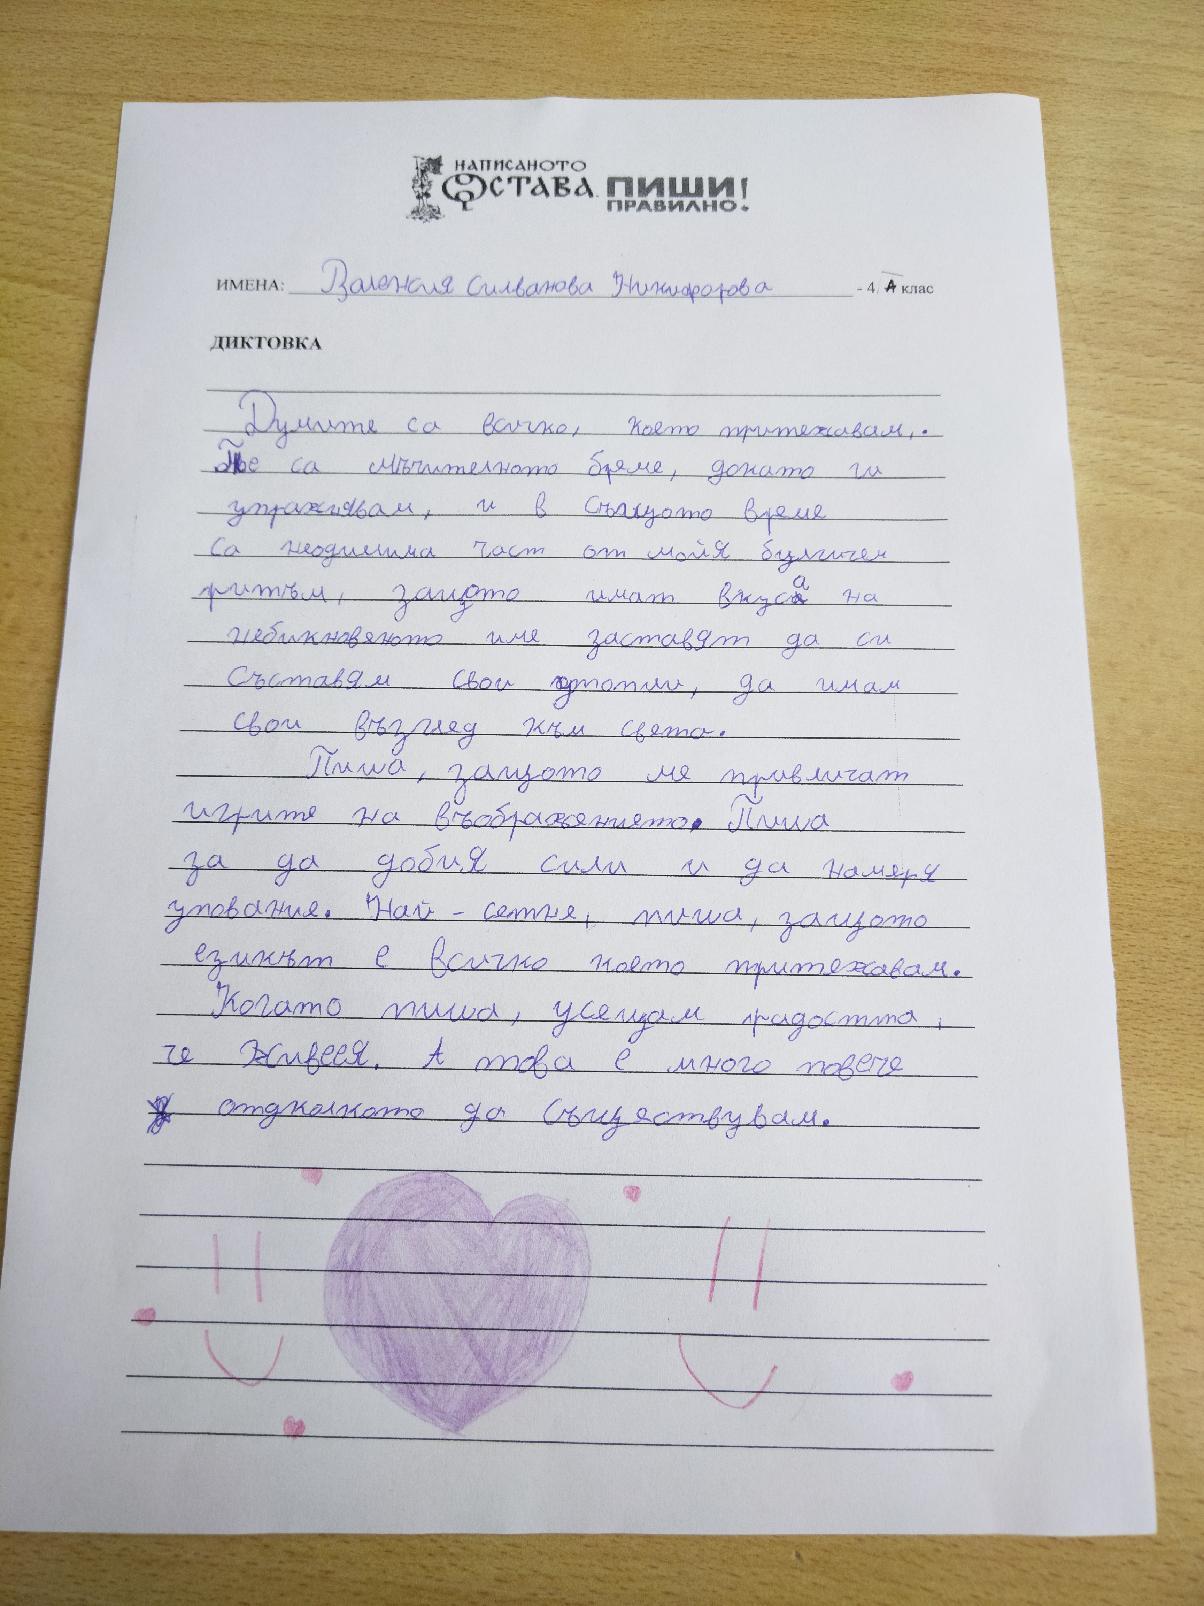 НАПИСАНОТО
ОСТАВА. ПИШИ
ПРАВИЛНО!
ИМЕНА: Валенсия Силванова Никифорова - 4. А клас
ДИКТОВКА
Думите са всичко, което притежавам,.
Те са мъчителното бреме, докато ги
упражнявам, и в същото време
са неодимима част от мойя булгичен
ритъм, защото имат вкуса на
небикновяното име заставят да си
съставям свои утопии, да имам
свои възглед към света.
Пиша, защото ме привличат
игрите на въображението. Пиша
за да добия сили и да намеря
упование. Най - сетне, пиша, защото
езикът е всичко което притежавам.
Когато пиша, усещам радостта,
че живея. А това е много повече
отдколкото да съществувам.